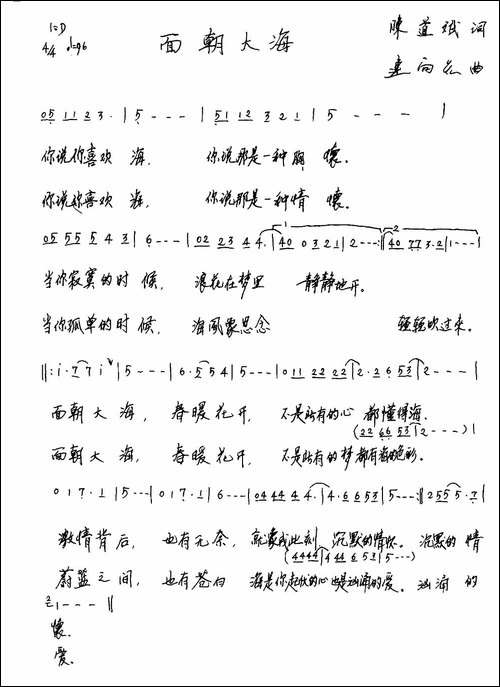 1=D
4/4 ♩=96
面朝大海
陈道斌 词
曲
05 11 2 3 · | 5 - - - | 51 12 3 2 1 | 5 - - - |
你说你喜欢 海， 你说那是一种胸 怀。
你说你喜欢 海， 你说那是一种情 怀。
05 55 5 4 3 | 6 · - - - | 02 23 44 · | 40 0 3 2 1 | 2 - - - :‖ 40 77 3·2 | 1 - - - |
当你寂寞的时 候， 浪花在梦里 静静地开。
当你孤单的时 候， 海风象思念 轻轻吹过来。
‖: i · 7 7 i | 5 - - - | 6 · 5 5 4 | 5 - - - | 0 11 22 22 | 2 · 2 6 53 | 2 - - - |
面朝大海， 春暖花开， 不是所有的心 都懂得海。
(22 66 53 | 2 - - - ) |
面朝大海， 春暖花开， 不是所有的梦都有
0 1 7 · 1 | 5 - - - | 0 1 7 · 1 | 6 - - - | 04 44 4 4 · | 4 · 6 6 53 | 5 - - - :‖ 2 55 5 · 7 |
激情背后， 也有无奈， 就象此刻 沉默的情怀。 沉默的 情
(4444 | 4 44 6 53 | 5 - - - )
蔚蓝之间， 也有苍白 海是你 的心 也是汹涌的爱。 汹涌 的
2 1 - - - ‖
怀。
爱。